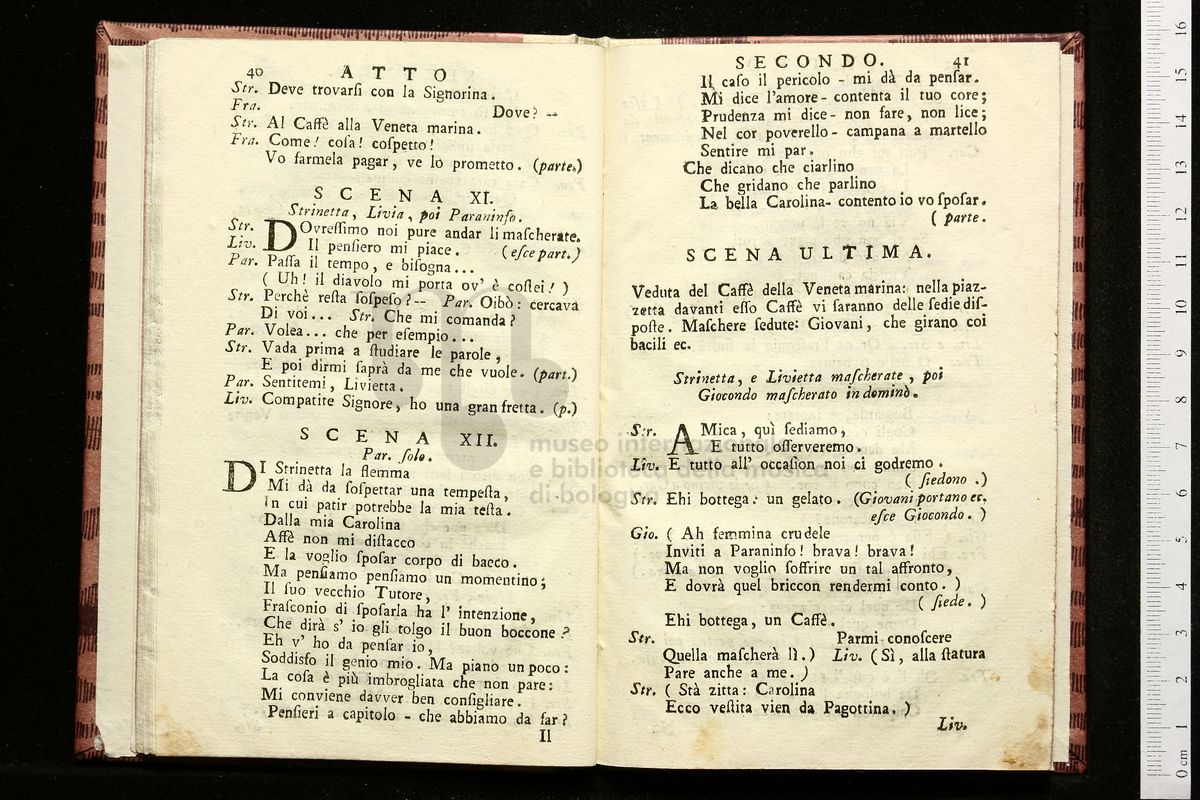 40 ATTO
Str. Deve trovarſi con la Signorina.
Fra. Dove? --
Str. Al Caffè alla Veneta marina.
Fra. Come! coſa! coſpetto!
Vo farmela pagar, ve lo prometto. (parte.)
SCENA XI.
Strinetta, Livia, poi Paraninfo.
Str. DOvreſſimo noi pure andar li maſcherate.
Liv. Il penſiero mi piace. (eſce part.)
Par. Paſſa il tempo, e biſogna...
( Uh! il diavolo mi porta ov' è coſtei! )
Str. Perchè reſta ſoſpeſo? -- Par. Oibò: cercava
Di voi... Str. Che mi comanda?
Par. Volea... che per eſempio...
Str. Vada prima a ſtudiare le parole,
E poi dirmi ſaprà da me che vuole. (part.)
Par. Sentitemi, Livietta.
Liv. Compatite Signore, ho una gran fretta. (p.)
SCENA XII.
Par. ſolo.
DI Strinetta la flemma
Mi dà da ſoſpettar una tempeſta,
In cui patir potrebbe la mia teſta.
Dalla mia Carolina
Affè non mi diſtacco
E la voglio ſpoſar corpo di bacco.
Ma penſiamo penſiamo un momentino;
Il ſuo vecchio Tutore,
Fraſconio di ſpoſarla ha l' intenzione,
Che dirà s' io gli tolgo il buon boccone?
Eh v' ho da penſar io,
Soddisfo il genio mio. Ma piano un poco:
La coſa è più imbrogliata che non pare:
Mi conviene davver ben conſigliare.
Penſieri a capitolo - che abbiamo da far?
Il
SECONDO. 41
Il caſo il pericolo - mi dà da penſar.
Mi dice l'amore - contenta il tuo core;
Prudenza mi dice - non fare, non lice;
Nel cor poverello - campana a martello
Sentire mi par.
Che dicano che ciarlino
Che gridano che parlino
La bella Carolina - contento io vo ſpoſar.
( parte.
SCENA ULTIMA.
Veduta del Caffè della Veneta marina: nella piaz-
zetta davanti eſſo Caffè vi ſaranno delle ſedie diſ-
poſte. Maſchere ſedute: Giovani, che girano coi
bacili ec.
Strinetta, e Livietta maſcherate, poi
Giocondo maſcherato in dominò.
Str. AMica, quì ſediamo,
E tutto oſſerveremo.
Liv. E tutto all' occaſion noi ci godremo.
( ſiedono .)
Str. Ehi bottega: un gelato. (Giovani portano ec.
eſce Giocondo. )
Gio. ( Ah femmina crudele
Inviti a Paraninfo! brava! brava!
Ma non voglio ſoffrire un tal affronto,
E dovrà quel briccon rendermi conto. )
( ſiede. )
Ehi bottega, un Caffè.
Str. Parmi conoſcere
Quella maſcherà lì.) Liv. (Sì, alla ſtatura
Pare anche a me. )
Str. ( Stà zitta: Carolina
Ecco veſtita vien da Pagottina. )
Liv.
museo internazionale
e biblioteca della musica
di bologna
0 cm 1 2 3 4 5 6 7 8 9 10 11 12 13 14 15 16